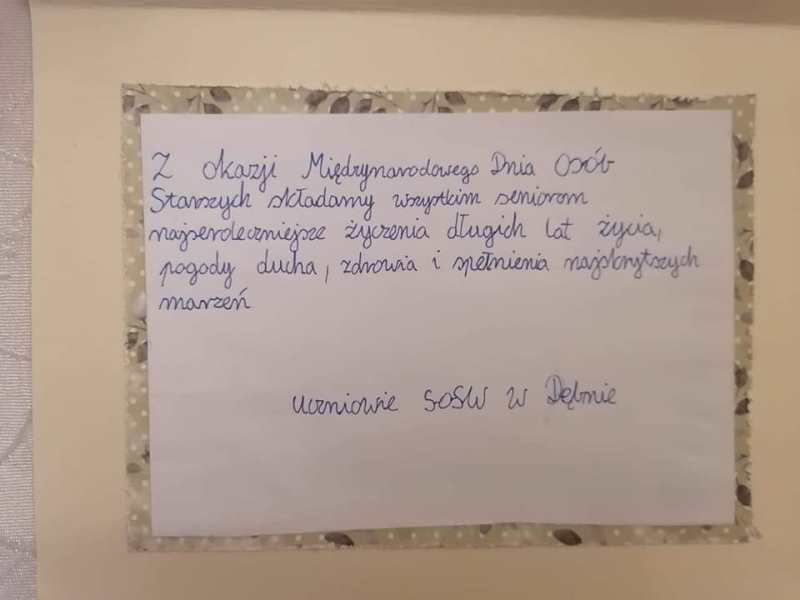 Z okazji Międzynarodowego Dnia Osób
Starszych składamy wszystkim seniorom
najserdeczniejsze życzenia długich lat życia,
pogody ducha, zdrowia i spełnienia najskrytszych
marzeń
uczniowie SOSW w Dębnie